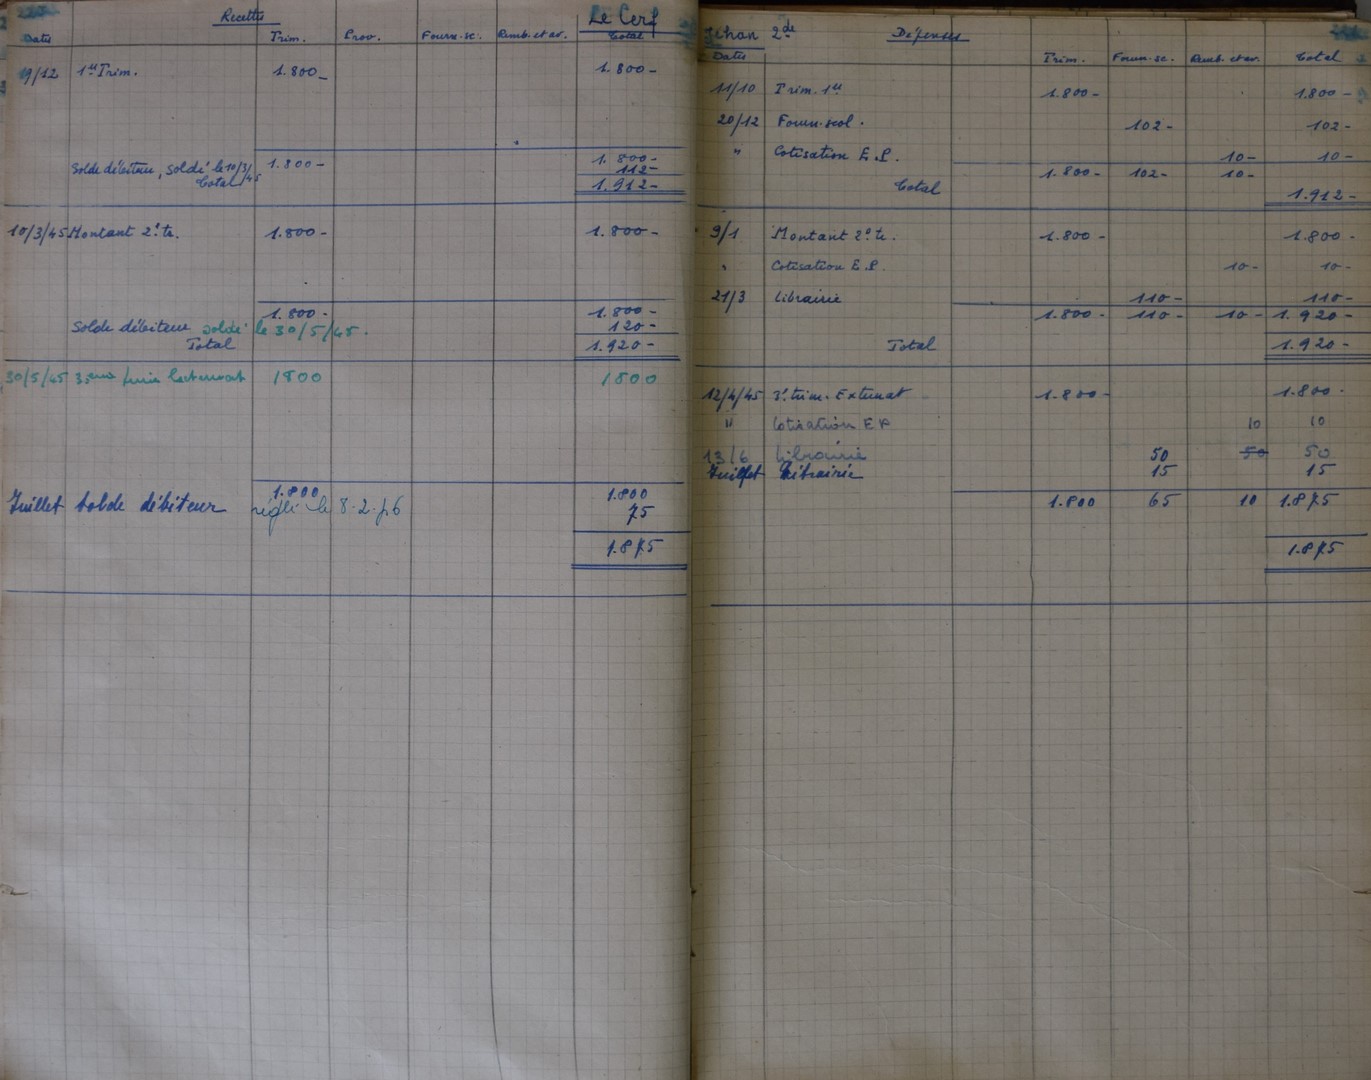 Recettes Le Cerf
Dates Trim. Prov. Fourn. sc. Remb. et av. Total
9/12 1er Trim. 1.800- 1.800-
1.800- 1.800-
Solde débiteur, soldé le 10/3/45 112-
Total 1.912-
10/3/45 Montant 2e tr. 1.800- 1.800-
1.800- 1.800-
Solde débiteur soldé le 30/5/45. 120-
Total 1.920-
30/5/45 3eme 1800 1800
1.800 1.800
Juillet Solde débiteur réglé le 8.2.46 75
1.875
Jehan 2de Dépenses
Dates Trim. Fourn. sc. Remb. et av. Total
11/10 Trim. 1er 1.800- 1.800-
20/12 Fourn. scol. 102- 102-
" Cotisation E.P. 10- 10-
1.800- 102- 10-
Total 1.912-
9/1 Montant 2e tr. 1.800- 1.800-
" Cotisation E.P. 10- 10-
21/3 Librairie 110- 110-
1.800- 110- 10- 1.920-
Total 1.920-
12/4/45 3e trim. Externat 1.800- 1.800-
" Cotisation EP 10 10
13/6 Librairie 50 50 50
Juillet Librairie 15 15
1.800 65 10 1.875
1.875